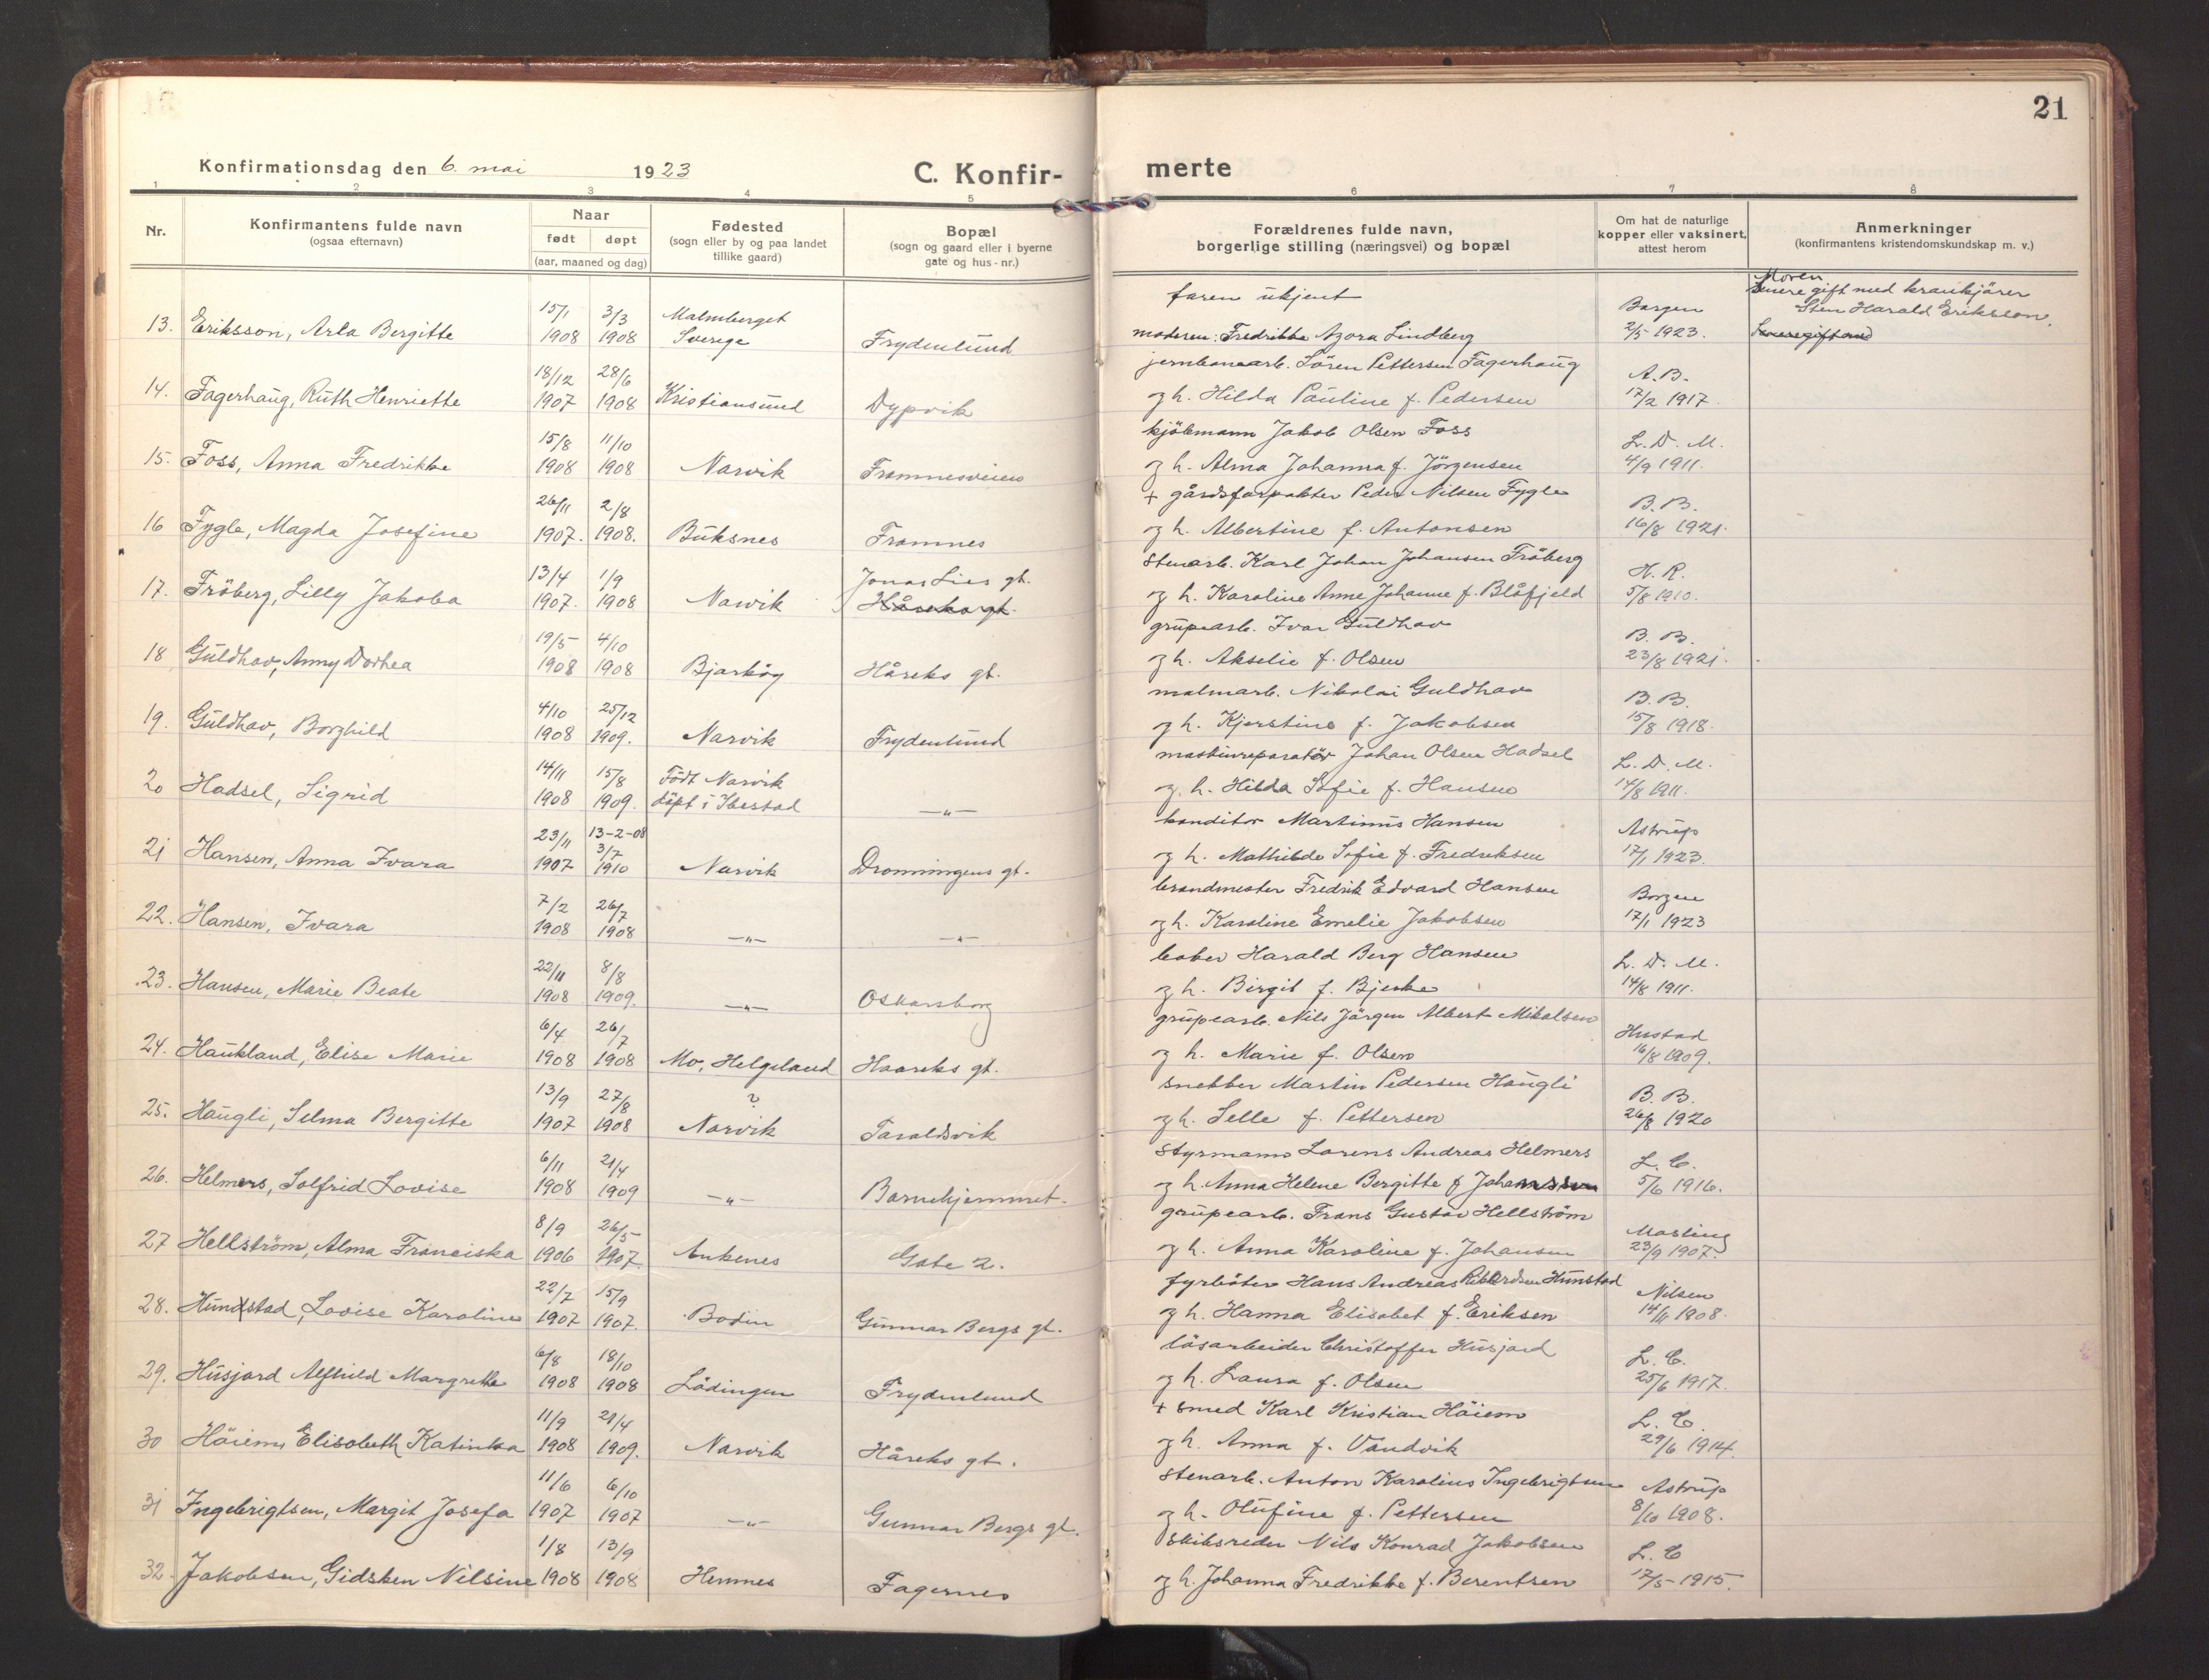 21
Konfirmationsdag den 6. mai 1923
C. Konfir-
merte
1 2 3 4 5 6 7 8
Nr.
Konfirmantens fulde navn
(ogsaa efternavn)
Naar
født døpt
(aar, maaned og dag)
Fødested
(sogn eller by og paa landet
tillike gaard)
Bopæl
(sogn og gaard eller i byerne
gate og hus-nr.)
Forældrenes fulde navn,
borgerlige stilling (næringsvei) og bopæl
Om hat de naturlige
kopper eller vaksinert,
attest herom
Anmerkninger
(konfirmantens kristendomskundskap m. v.)
15/1 3/3 Malmberget faren ukjent Borgen Moren Senere gift med krankjører
13. Eriksson, Arla Bergitte 1908 1908 Sverige Frydenlund moderen: Fredrikke Azora Lindberg 2/5 1923. Sten Harald Eriksson.
18/12 28/6 jernbanearb. Sören Pettersen Fagerhaug A.B.
14. Fagerhaug, Ruth Henriette 1907 1908 Kristiansund Dypvik og h. Hilda Pauline f. Pedersen 17/2 1917.
15/8 11/10 kjöbmann Jakob Olsen Foss L. D. M.
15. Foss, Anna Fredrikke 1908 1908 Narvik Framnesveien og h. Alma Johanna f. Jörgensen 4/9 1911.
26/11 2/8 + gårdsforpakter Peder Nilsen Fygle B. B.
16 Fygle, Magda Josefine 1907. 1908. Buksnes Framnes og h. Albertine f. Antonsen 16/8 1921.
13/4 1/9 Jonas Lies gt. Stenarb. Karl Johan Johansen Fröberg H. R.
17. Fröberg, Lilly Jakoba 1907. 1908 Narvik Håreks gt. og h. Karoline Anne Johanne f. Blåfjeld 5/8 1910.
19/5 4/10 grubearb. Ivar Guldhav B. B.
18 Guldhav, Anny Dorhea 1908 1908 Bjarköy Håreks gt. og h. Akselie f. Olsen 23/8 1921.
4/10 25/12 malmarb. Nikolai Guldhav B. B.
19. Guldhav, Borghild 1908 1909. Narvik Frydenlund og h. Kjerstine f. Jakobsen 15/8 1918.
14/11 15/8 Födt Narvik maskinreparatör Johan Olsen Hadsel L. D. M.
20 Hadsel, Sigrid 1908 1909. döpt i Ibestad —"— og h. Hilda Sofie f. Hansen 14/8 1911.
23/11 13-2-08 3/7 konditor Martinus Hansen Astrup
21 Hansen, Anna Ivara 1907 1910 Narvik Dronningens gt. og h. Mathilde Sofie f. Fredriksen 17/1 1923.
7/2 26/7 brandmester Fredrik Edvard Hansen Borgen
22. Hansen, Ivara 1908 1908 —"— —"— og h. Karoline Emelie Jakobsen 17/1 1923
22/11 8/8 Harald Berg Hansen L. D. M.
23. Hansen, Marie Beate 1908 1909. —"— Oskarsborg og h. Birgit f. Bjerke 14/8 1911.
6/4 26/7 grubearb. Nils Jörgen Albert Mikalsen Hustad
24. Haukland, Elise Marie 1908 1908 Mo, Helgeland Haareks gt. og h. Marie f. Olsen 16/8 1909.
13/9 27/8 ? snekker Martin Pedersen Haugli B. B.
25. Haugli, Selma Bergitte 1907 1908 Narvik Taraldsvik og h. Selle f. Pettersen 26/8 1920
6/11 21/4 Styrmann Lorens Andreas Helmers L. C.
26. Helmers, Solfrid Lovise 1908 1909 —"— Barnehjemmet. og h. Anna Helene Bergitte f Johanssen 5/6 1916.
8/9 26/5 grubearb. Frans Gustav Hellström
27 Hellström, Alma Franciska 1906 1907. Ankenes Gate 2. og h. Anna Karoline f. Johansen 23/9 1907.
22/7 15/9 fyrböter Hans Andreas Rikardsen Hunstad Nilsen
28. Hunstad, Lovise Karoline 1907 1907. Bodin Gunnar Bergs gt. og h. Hanna Elisabet f. Eriksen 14/11 1908.
6/8 18/10 lösarbeider Christoffer Husjord L. C.
29. Husjord Alfhild Margrethe 1908 1908 Lödingen Frydenlund og h. Laura f. Olsen 25/6 1917.
11/9 21/4 + smed Karl Kristian Höiem L. C.
30 Höiem, Elisabeth Katinka 1908 1909. Narvik Håreks gt. og h. Anna f. Vandvik 29/6 1914.
11/6 6/10 Stenarb. Anton Karolius Ingebrigtsen Astrup
31 Ingebrigtsen, Margit Josefa 1907 1907 —"— Gunnar Bergs gt. og h. Olufine f. Pettersen 8/10 1908.
1/8 13/9 Skibsreder Nils Konrad Jakobsen L. C
32. Jakobsen, Gidsken Nilsine 1908 1908 Hemnes Fagernes og h. Johanna Fredrikke f. Berentsen 12/5-1915.